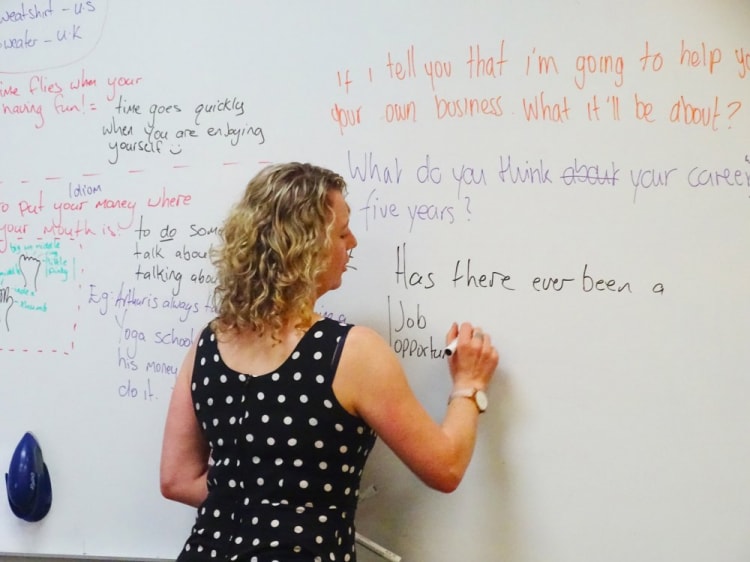 sweatshirt - U.S
sweater - U.K
time flies when your
having fun! =
time goes quickly
when you are enjoying
yourself
Idiom
to put your money where
your mouth is:
to do som
talk abou
talking abo
big
middle
little
pinky
index
thumb
Eg: Arthur is always ta
in a
Yoga school
his money
do it.
If I tell you that i'm going to help yo
your own business. What it'll be about?
What do you think about your career
five years?
Has there ever been a
Job
opportun